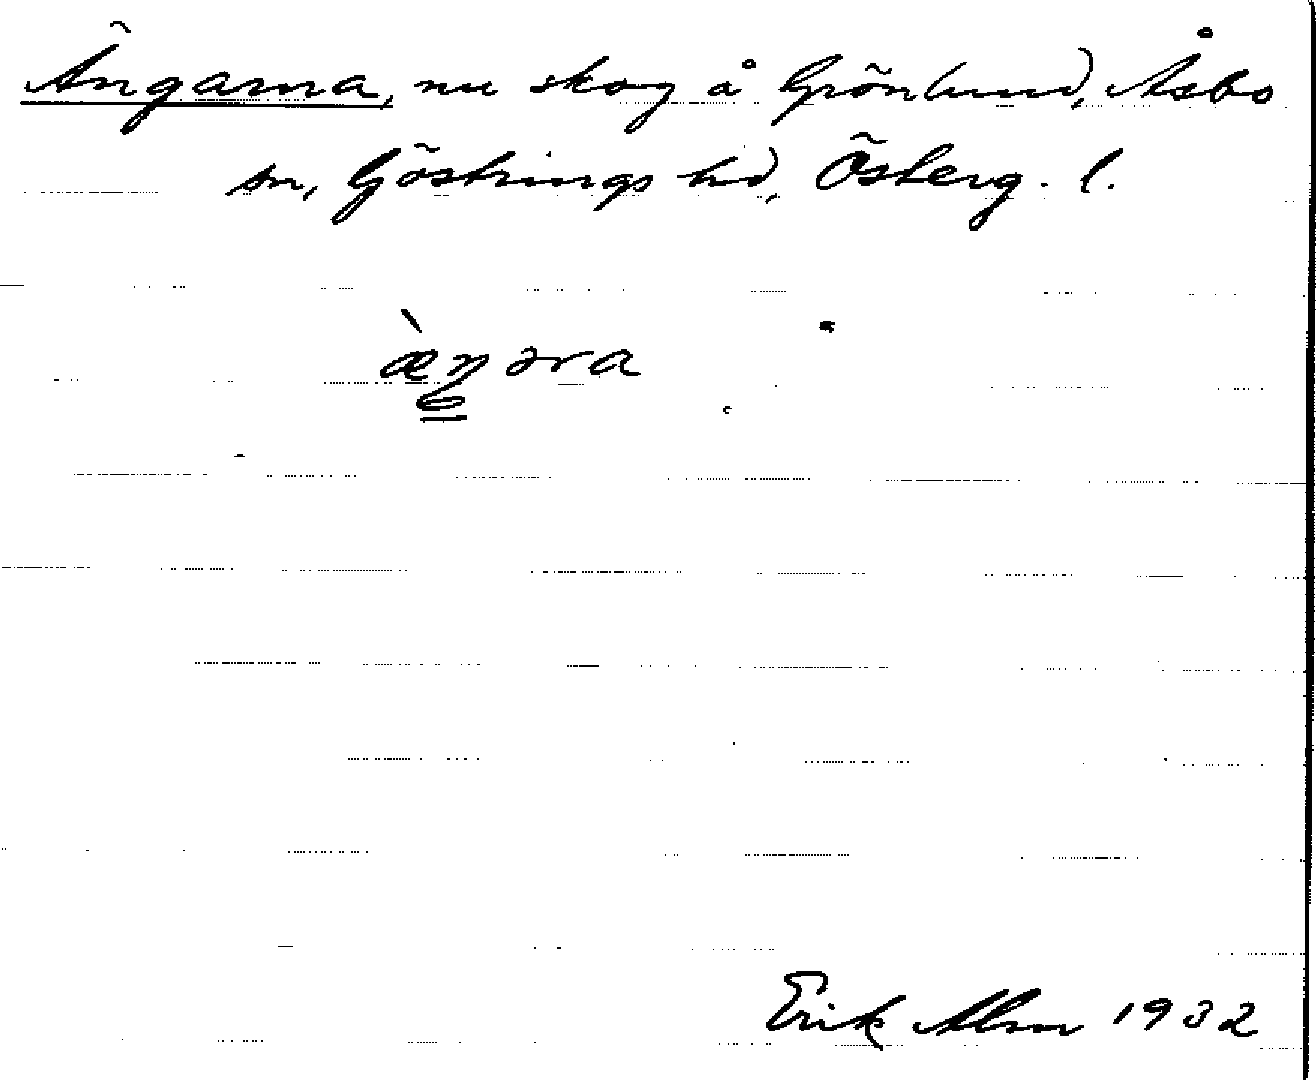 Ängarna, nu skog å Grönlund, Åsbo
sn, Göstrings hd, Österg. l.
æ̀ŋəra
Erik Alm 1932